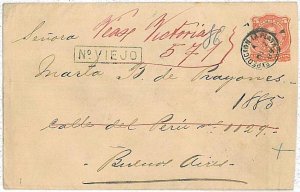 Señora Vease Victoria
Nº VIEJO
571
Marta R. de Prayones
1885
Calle del Perú nº 1129
Buenos Aires